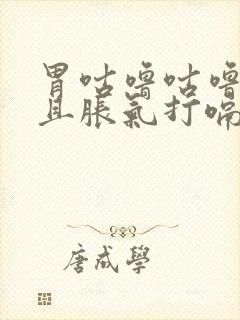 胃咕噜咕噜
且脹氣打嗝
唐成學